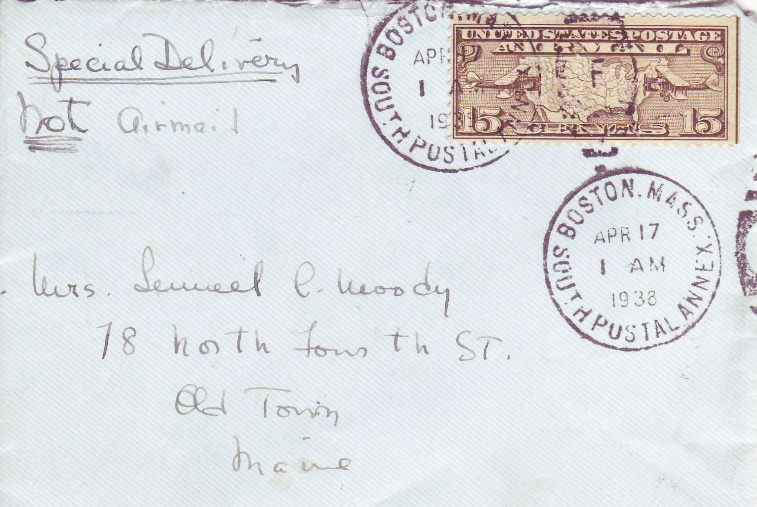 Special Delivery
Not Airmail
BOSTON, MASS.
APR
1 AM
193
SOUTH POSTAL
UNITED STATES POSTAGE
AIR MAIL
15 CENTS 15
BOSTON, MASS.
APR 17
1 AM
1938
SOUTH POSTAL ANNEX
Mrs. Lemuel C. Moody
78 North Fourth St.
Old Town
Maine